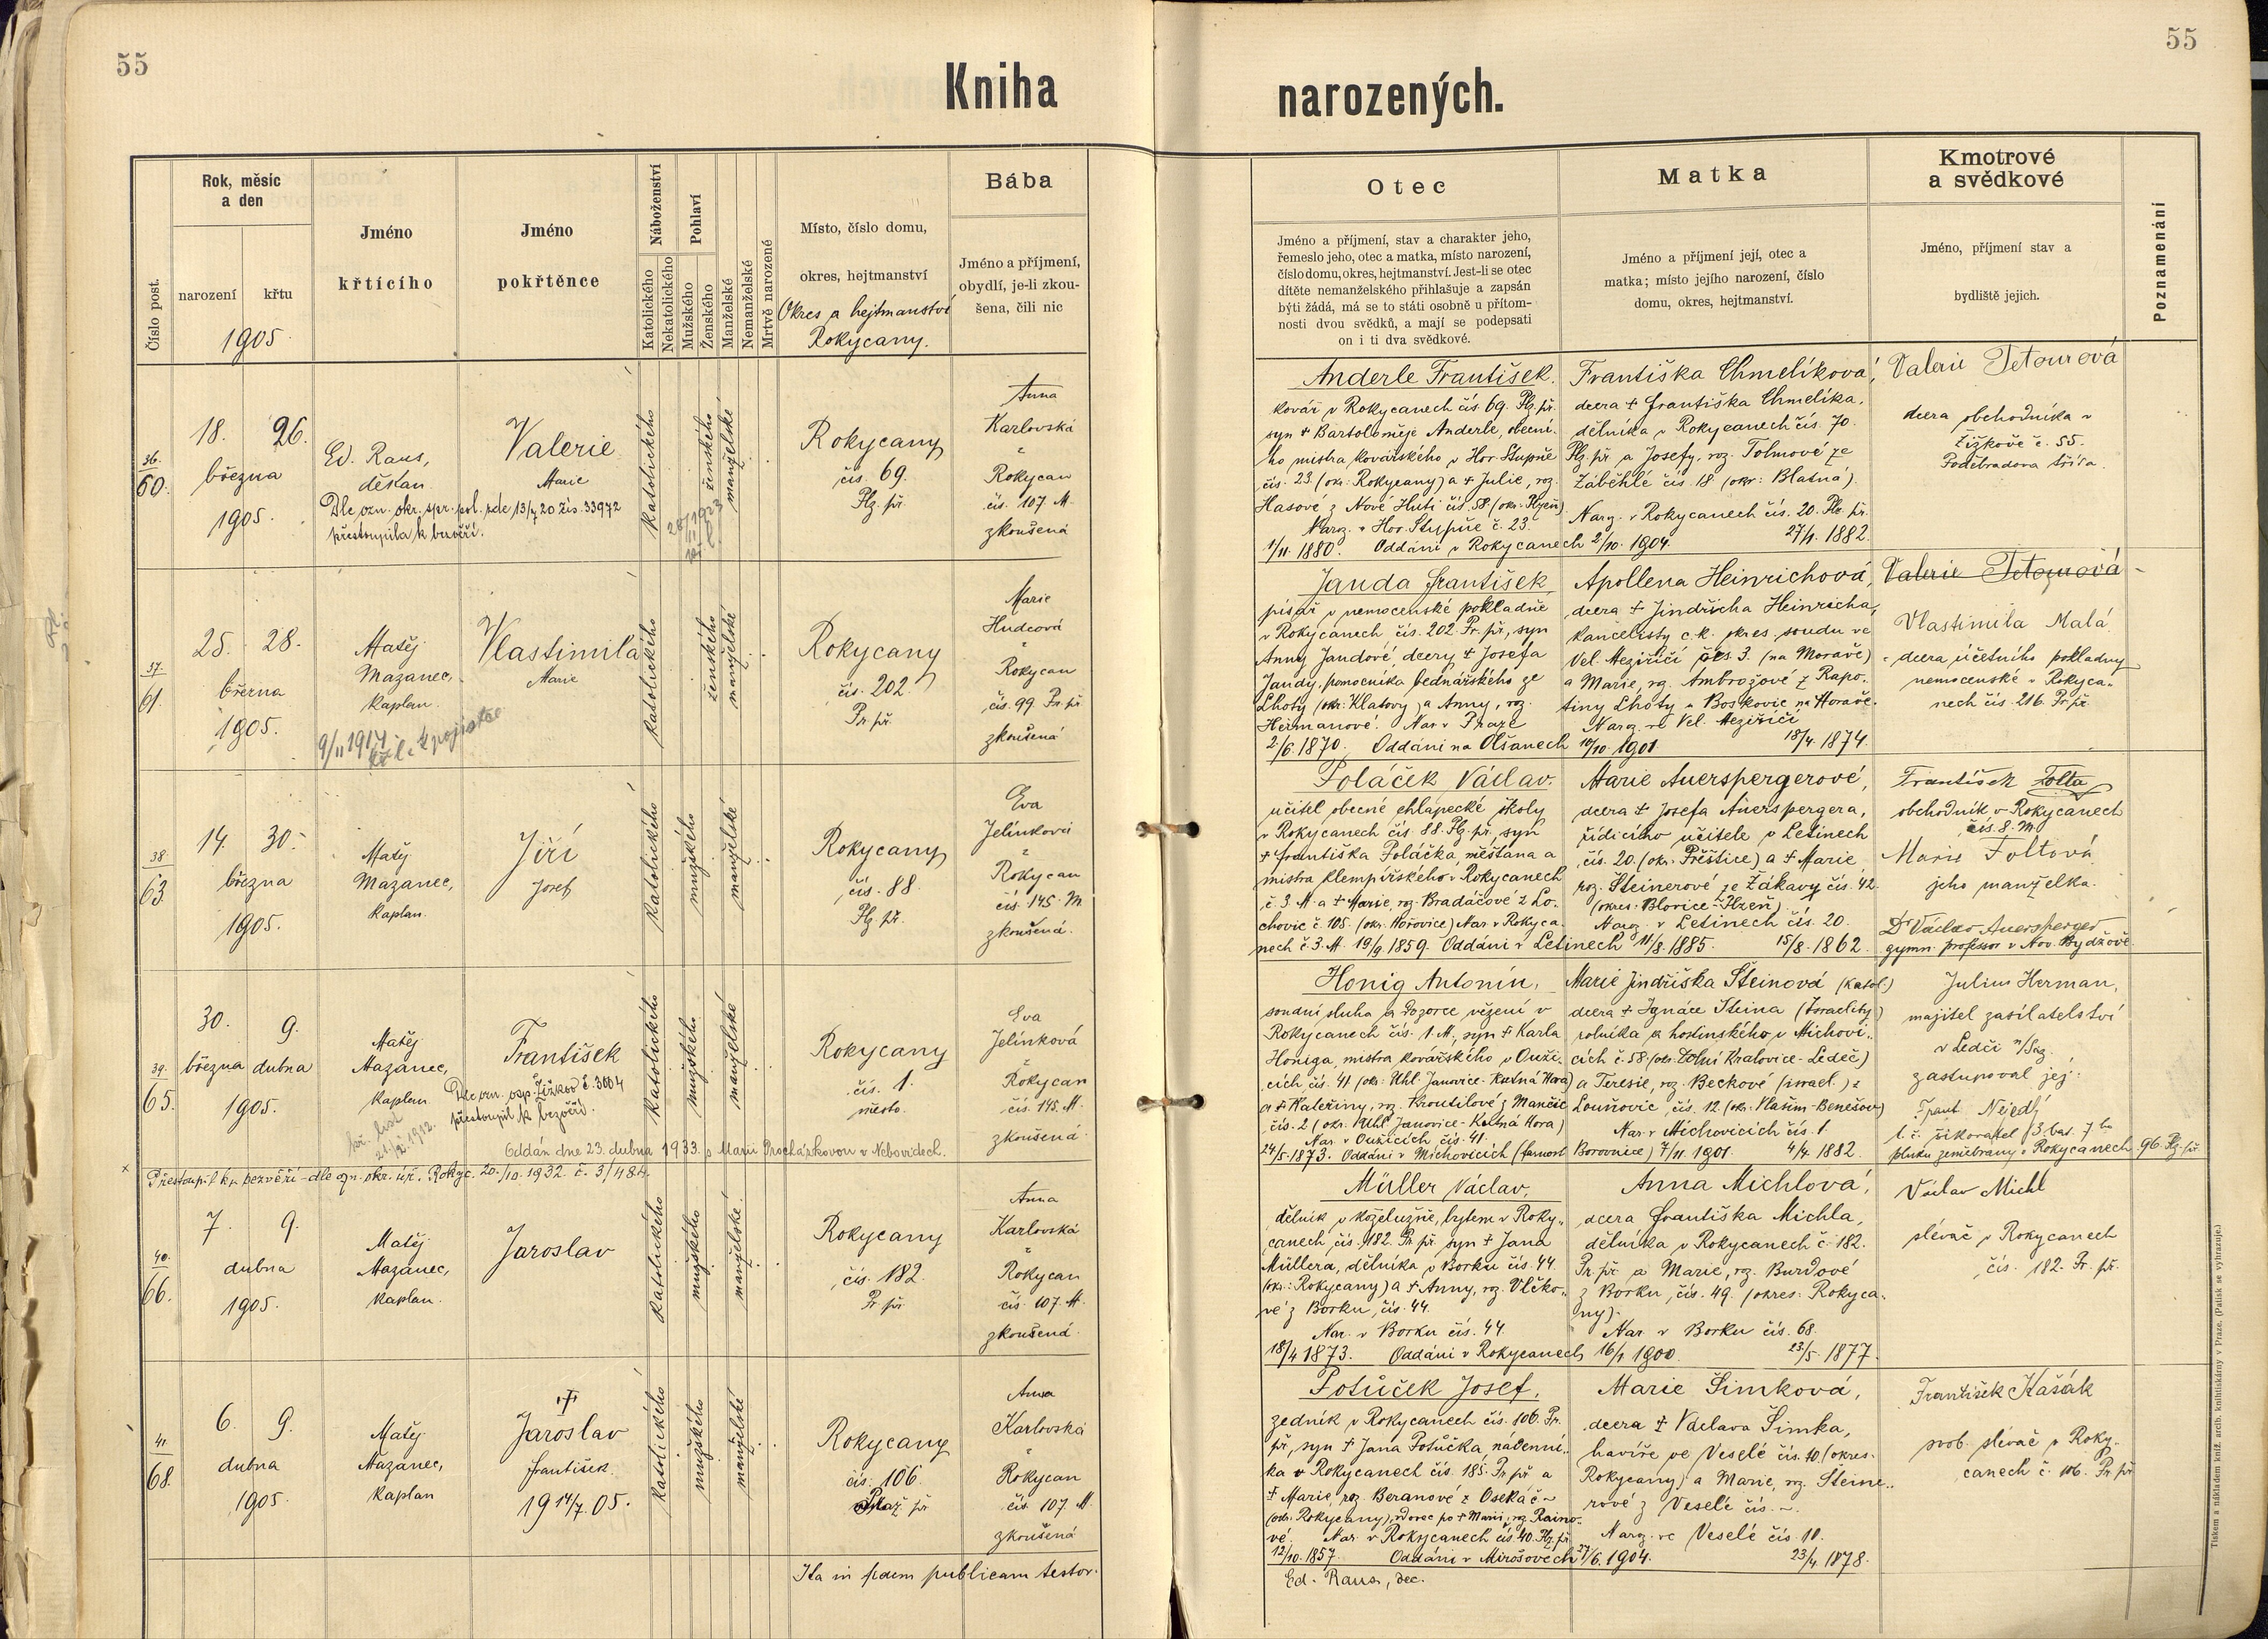 55
55
Kniha
narozených.
Číslo post.
Rok, měsíc
a den
narození
křtu
1905
Jméno
křtícího
Jméno
pokřtěnce
Náboženství
Katolického
Nekatolického
Pohlaví
Mužského
Ženského
Manželské
Nemanželské
Mrtvě narozené
Místo, číslo domu,
okres, hejtmanství
Okres a hejtmanství
Rokycany.
Bába
Jméno a příjmení,
obydlí, je-li zkou-
šena, čili nic
Otec
Jméno a příjmení, stav a charakter jeho,
řemeslo jeho, otec a matka, místo narození,
číslo domu, okres, hejtmanství. Jest-li se otec
dítěte nemanželského přihlašuje a zapsán
býti žádá, má se to státi osobně u přítom-
nosti dvou svědků, a mají se podepsati
on i ti dva svědkové.
Matka
Jméno a příjmení její, otec a
matka; místo jejího narození, číslo
domu, okres, hejtmanství.
Kmotrové
a svědkové
Jméno, příjmení stav a
bydliště jejich.
Poznamenání
36.
60.
18. 26.
března
1905.
Ed. Raus,
děkan.
Valerie
Marie
Dle ozn. okr. spr. pol. zde 13/7 20 žís. 33972
přestoupila k bezvěří.
katolického
ženského
manželské
Rokycany
čís. 69.
Plz. př.
Anna
Karlovská
z
Rokycan
čís. 107 M.
zkoušená
Anderle František.
kovář v Rokycanech čís. 69. Plz. př.
syn † Bartoloměje Anderle, obecní-
ho mistra kovářského v Hor. Stupně
čís. 23. (okr. Rokycany) a † Julie, roz.
Hasové z Nové Huti čís. 58 (okr. Plzeň)
Naroz. v Hor. Stupně č. 23.
1/11. 1880. Oddáni v Rokycanech 2/10. 1904.
Františka Chmelíková,
dcera † Františka Chmelíka,
dělníka v Rokycanech čís. 70.
Plz. př. a Josefy, roz. Tolmové ze
Záběhlé čís. 18 (okr: Blatná).
Naroz. v Rokycanech čís. 20. Plz. př.
27/1. 1882.
Valerie Tetourová
dcera obchodníka v
Žižkově č. 55.
Poděbradova třída.
37
61.
25. 28.
března
1905.
Matěj
Mazanec,
kaplan.
9/11 1917
Vlastimila
Marie
katolického
ženského
manželské
Rokycany
čís. 202.
Pr. př.
Marie
Hudcová
z
Rokycan
čís. 99. Pr. př.
zkoušená
Janda František
písař v nemocenské pokladně
v Rokycanech čís. 202. Pr. př., syn
Anny Jandové, dcery † Josefa
Jandy, pomocníka bednářského ze
Lhoty (okr. Klatovy) a Anny, roz.
Heřmanové. Nar. v Praze
2/6. 1870. Oddáni na Olšanech 10/10. 1901.
Apollena Heinrichová,
dcera † Jindřicha Heinricha,
kancelisty c.k. okres. soudu ve
Vel. Meziříčí čís. 3. (na Moravě)
a Marie, roz. Ambrožové z Rapo-
tiny Lhoty u Boskovic na Moravě.
Naroz. ve Vel. Meziříčí
18/4. 1874.
Valerie Tetourová
Vlastimila Malá
dcera účetního pokladny
nemocenské v Rokyca-
nech čís. 216. Pr. př.
38
63.
14. 30.
března
1905.
Matěj
Mazanec,
kaplan.
Jiří
Josef
katolického
mužského
manželské
Rokycany
čís. 88.
Plz. př.
Eva
Jelínková
z
Rokycan
čís. 145. M.
zkoušená.
Poláček Václav.
učitel obecné chlapecké školy
v Rokycanech čís. 88. Plz. př., syn
† Františka Poláčka, měšťana a
mistra klempířského v Rokycanech
č. 3. M. a † Marie, roz. Bradáčové z Lo-
chovic č. 105. (okr. Hořovice) Nar. v Rokyca-
nech č. 3. M. 19/9 1859. Oddáni v Letinech 11/8. 1885.
Marie Auerspergerové,
dcera † Josefa Auerspergera,
řídícího učitele v Letinech
čís. 20. (okr. Přeštice) a † Marie
roz. Steinerové ze Žákavy čís. 42.
(okres: Blovice-Plzeň).
Naroz. v Letinech čís. 20.
15/8. 1862.
František Tolta
obchodník v Rokycanech
čís. 8. M.
Marie Toltová
jeho manželka.
Dr Václav Auersperger
gymn. professor v Nov. Bydžově.
39.
65.
30. 9.
března dubna
1905.
Matěj
Mazanec,
kaplan.
František
Dle ozn. osp. Žižkov č. 3004
přestoupil k bezvěří.
katolického
mužského
manželské
Rokycany
čís. 1.
město.
Eva
Jelínková
z
Rokycan
čís. 145. M.
zkoušená
Oddán dne 23. dubna 1933. s Marií Procházkovou v Nebovidech.
Honig Antonín,
soudní sluha a dozorce vězení v
Rokycanech čís. 1. M., syn † Karla
Honiga, mistra kovářského v Ouži-
cích čís. 41 (okr: Uhl. Janovice-Kutná Hora)
a † Kateřiny, roz. Kroutilové z Mančic
čís. 2 (okr. Uhl. Janovice-Kutná Hora)
Nar. v Oužicích čís. 41.
24/5. 1873. Oddáni v Michovicích (farnost Borovnice) 7/11. 1901.
Marie Jindřiška Šteinová (katol.)
dcera † Ignáce Šteina (Israelity)
rolníka a hostinského v Michovi-
cích č. 58 (okr. Dolní Kralovice-Ledeč)
a Teresie, roz. Beckové (israel.) z
Louňovic, čís. 12. (okr. Vlašim-Benešov)
Nar. v Michovicích čís. 1.
4/4. 1882.
Julius Herman,
majitel zasílatelství
v Ledči n/Sáz.
zastupoval jej:
Frant. Nejedlý
t. č. šikovatel 3. bat. 7ho
pluku zeměbrany v Rokycanech 96. Plz. př.
Přestoupil ku bezvěří - dle ozn. okr. úř. Rokyc. 20./10. 1932. č. 3/484.
40.
66.
7. 9.
dubna
1905.
Matěj
Mazanec,
kaplan.
Jaroslav
katolického
mužského
manželské
Rokycany
čís. 182.
Pr. př.
Anna
Karlovská
z
Rokycan
čís. 107. M.
zkoušená.
Müller Václav,
dělník v koželužně, bytem v Roky-
canech, čís. 182. Pr. př. syn † Jana
Müllera, dělníka v Borku čís. 44.
(okr.: Rokycany) a † Anny, roz. Vlčko-
vé z Borku, čís. 44.
Nar. v Borku čís. 44.
18/4 1873. Oddáni v Rokycanech 16/1 1900.
Anna Michlová,
dcera Františka Michla,
dělníka v Rokycanech č. 182.
Pr. př. a Marie, roz. Burdové
z Borku, čís. 49. (okres: Rokyca-
ny).
Nar. v Borku čís. 68.
23/5. 1877.
Václav Michl
slévač v Rokycanech
čís. 182. Pr. př.
41.
68.
6. 9.
dubna
1905.
Matěj
Mazanec,
kaplan
†
Jaroslav
František.
19 14/7. 05.
katolického
mužského
manželské
Rokycany
čís. 106.
Praž. př.
Anna
Karlovská
z
Rokycan
čís. 107. M.
zkoušená
Potůček Josef,
zedník v Rokycanech čís. 106. Pr.
př., syn † Jana Potůčka, nádenní-
ka v Rokycanech čís. 185. Pr. př. a
† Marie, roz. Beranové z Oseka č ~
(okr. Rokycany), vdovec po † Marii, roz. Raino-
vé. Nar. v Rokycanech čís. 40. Plz. př.
12/10. 1857. Oddáni v Mirošovech 27/6. 1904.
Marie Šimková,
dcera † Václava Šimka,
havíře ve Veselé čís. 10. (okres.
Rokycany) a Marie, roz. Šteine-
rové z Veselé čís. ~.
Naroz. ve Veselé čís. 10.
23/4. 1878.
František Kašák
svob. slévač v Roky-
canech č. 106. Pr. př.
Ita in fidem publicam testor.
Ed. Raus, dec.
Tiskem a nákladem kníž. arcib. knihtiskárny v Praze. (Patisk se vyhrazuje.)